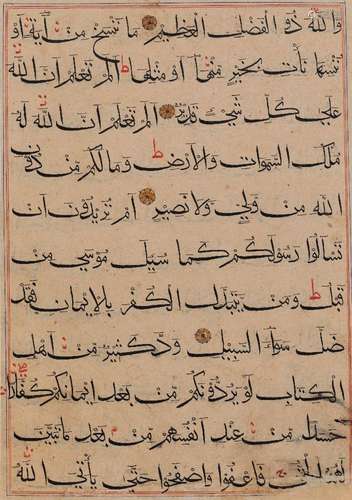 والله ذو الفضل العظيم ما ننسخ من آية او
ننسها نأت بخير منها او مثلها ألم تعلم ان الله
على كل شيء قدير ألم تعلم ان الله له
ملك السموات والارض وما لكم من دون
الله من ولي ولا نصير ام تريدون ان
تسألوا رسولكم كما سئل موسى من
قبل ومن يتبدل الكفر بالايمان فقد
ضل سواء السبيل ود كثير من اهل
الكتاب لو يردونكم من بعد ايمانكم كفارا
حسدا من عند انفسهم من بعد ما تبين
لهم الحق فاعفوا واصفحوا حتى يأتي الله